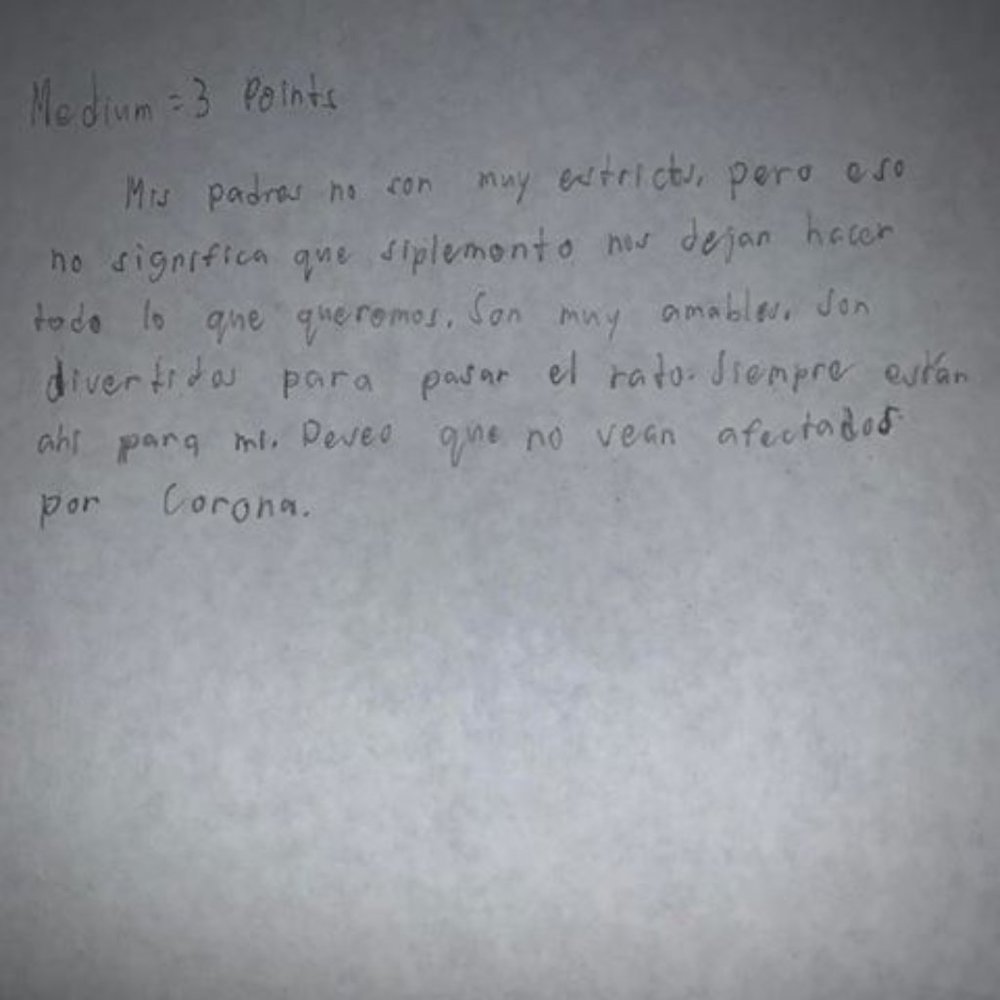 Medium = 3 Points
Mis padres no son muy estricts, pero eso
no significa que siplemente nos dejan hacer
todo lo que queremos. Son muy amables. Son
divertidos para pasar el rato. Siempre están
ahí para mi. Deseo que no vean afectados
por Corona.